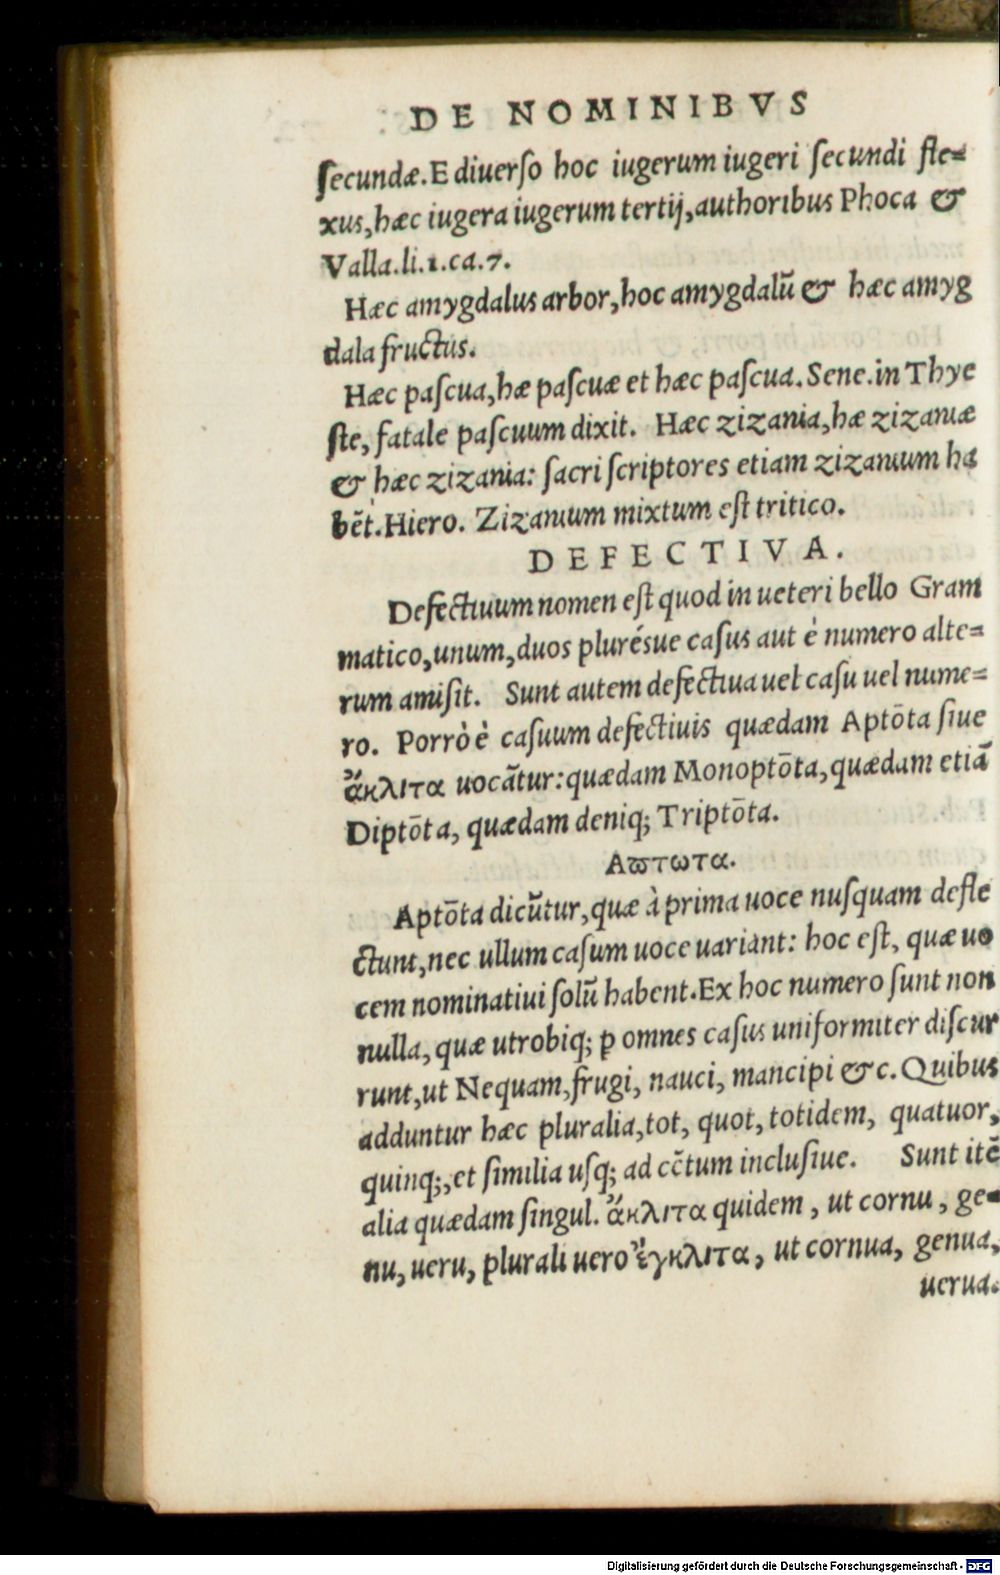 DE NOMINIBVS
ſecundæ. E diuerſo hoc iugerum iugeri ſecundi fle=
xus, hæc iugera iugerum tertij, authoribus Phoca &
Valla.li.1.ca.7.
Hæc amygdalus arbor, hoc amygdalū & hæc amyg
dala fructus.
Hæc paſcua, hæ paſcuæ et hæc paſcua. Sene. in Thye
ſte, fatale paſcuum dixit. Hæc zizania, hæ zizaniæ
& hæc zizania: ſacri ſcriptores etiam zizanium ha
bēt. Hiero. Zizanium mixtum eſt tritico.
DEFECTIVA.
Defectiuum nomen eſt quod in ueteri bello Gram
matico, unum, duos pluréſue caſus aut è numero alte=
rum amiſit. Sunt autem defectiua uel caſu uel nume=
ro. Porrò è caſuum defectiuis quædam Aptōta ſiue
ἄκλιτα uocātur: quædam Monoptōta, quædam etiā
Diptōta, quædam deniq; Triptōta.
Αϖτωτα.
Aptōta dicūtur, quæ à prima uoce nuſquam defle
ctunt, nec ullum caſum uoce uariant: hoc eſt, quæ uo
cem nominatiui ſolū habent. Ex hoc numero ſunt non
nulla, quæ utrobiq; ꝑ omnes caſus uniformiter diſcur
runt, ut Nequam, frugi, nauci, mancipi &c. Quibus
adduntur hæc pluralia, tot, quot, totidem, quatuor,
quinq;, et ſimilia uſq; ad cētum incluſiue. Sunt itē
alia quædam ſingul. ἄκλιτα quidem, ut cornu, ge=
nu, ueru, plurali uero ἔγκλιτα, ut cornua, genua,
uerua.
Digitalisierung gefördert durch die Deutsche Forschungsgemeinschaft - DFG